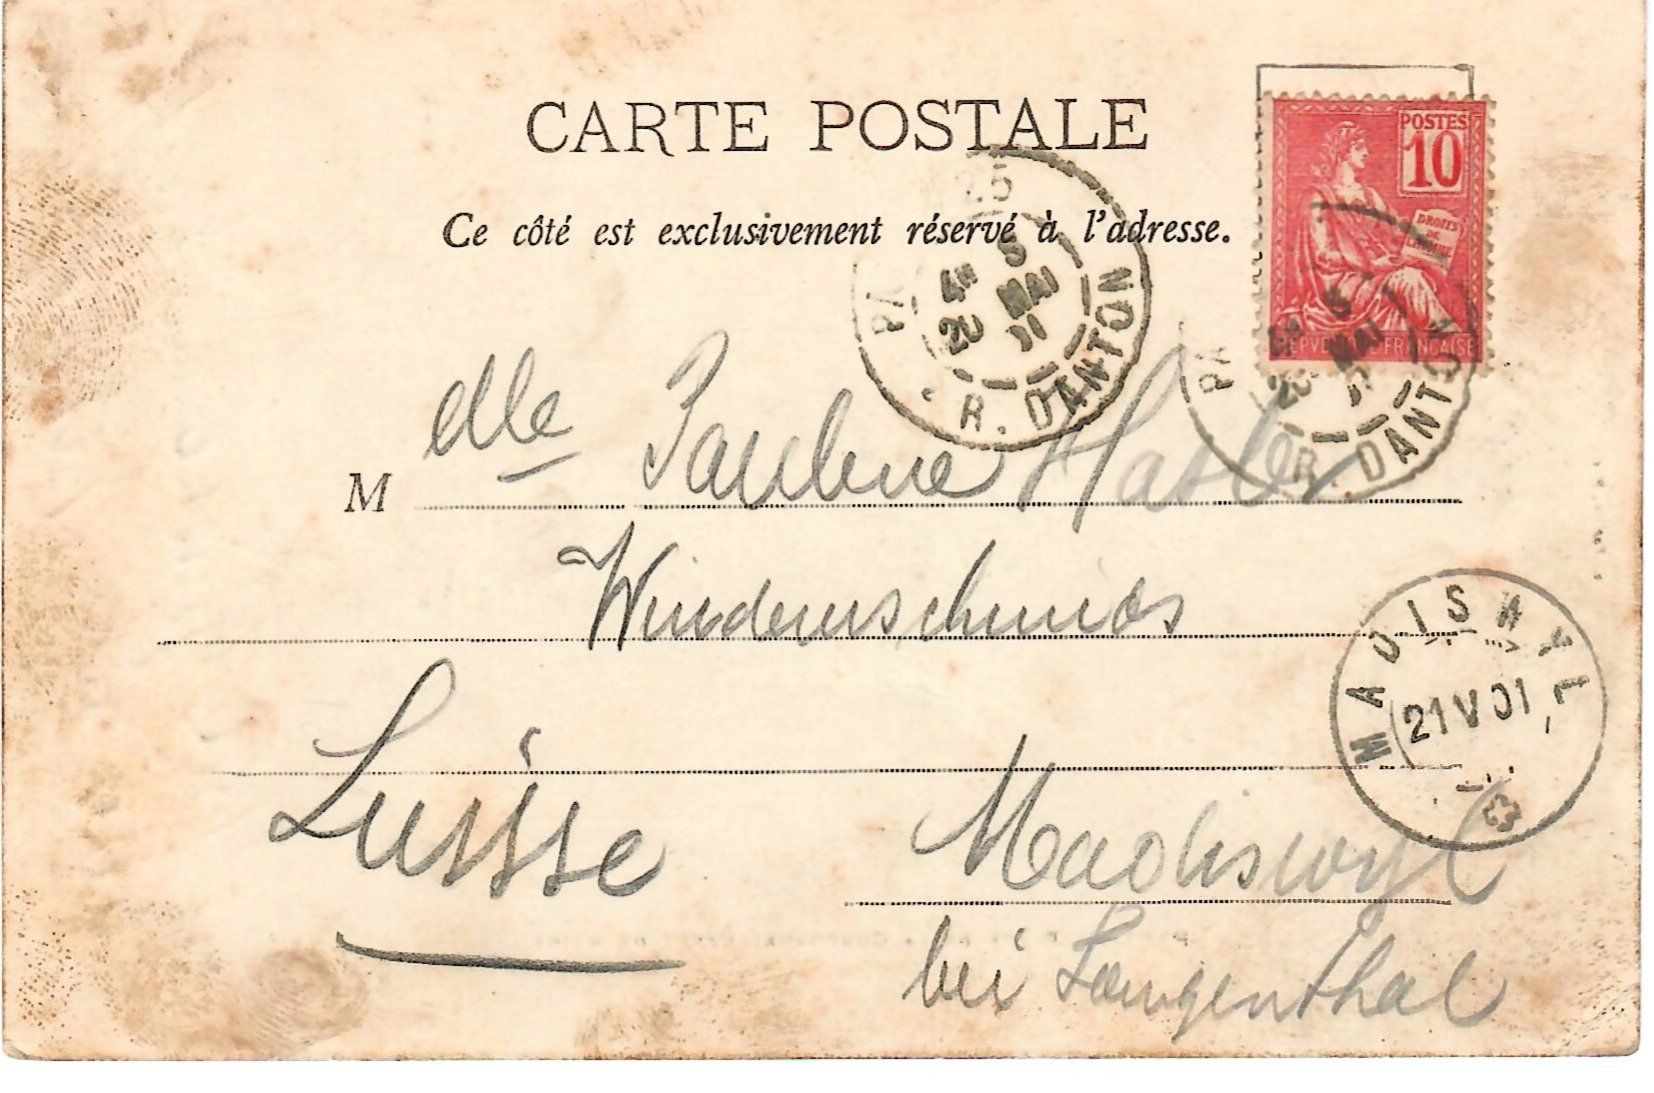 CARTE POSTALE
POSTES
10
Ce côté est exclusivement réservé à l'adresse.
DROITS
DE
L'HOMME
REPVBLIQUE FRANÇAISE
25
5
4E
20 MAI
01
R. DANTON
5
20 MAI
R. DANTON
M elle Pauline Hasler
MADISWYL
21 V 01
Suisse
Madiswyl
bei Langenthal